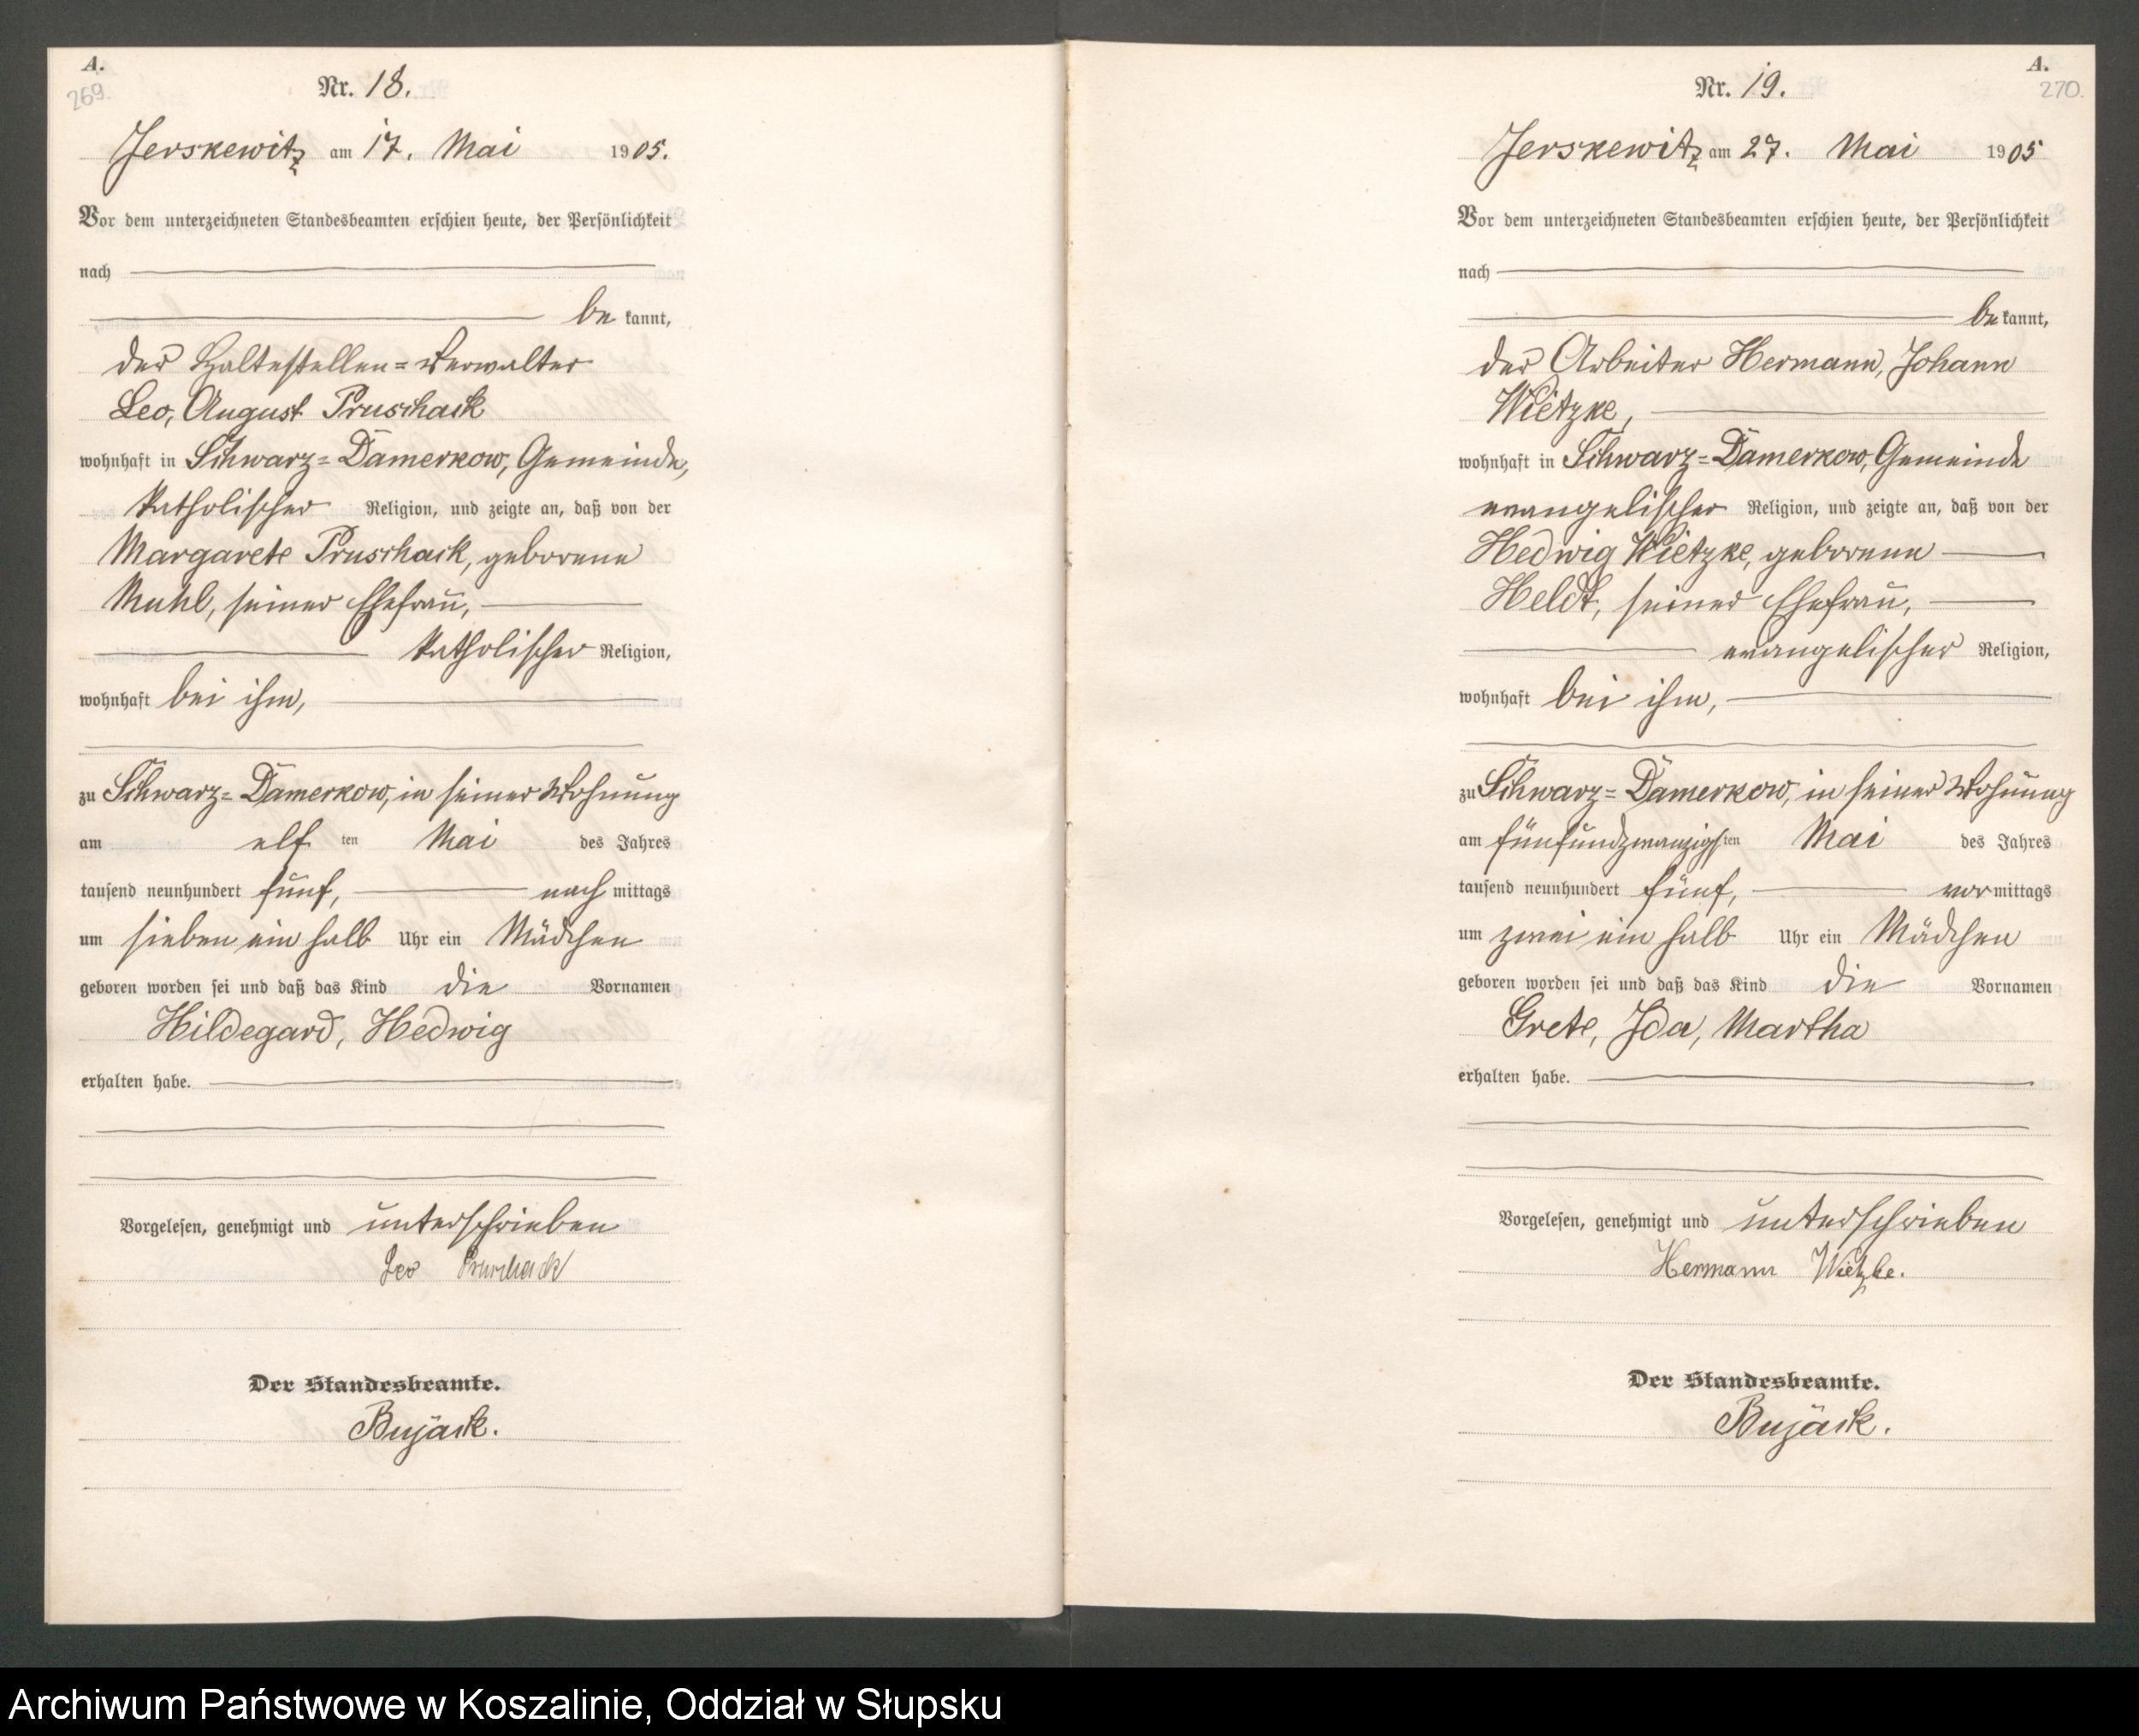 A.
269.
Nr. 18.
Jerskewitz am 17. Mai 1905.
Vor dem unterzeichneten Standesbeamten erschien heute, der Persönlichkeit
nach
be kannt,
der Haltestellen=Verwalter
Leo, August Pruschack
wohnhaft in Schwarz=Damerkow, Gemeinde,
katholischer Religion, und zeigte an, daß von der
Margarete Pruschack, geborene
Muhl, seiner Ehefrau,
katholischer Religion,
wohnhaft bei ihm,
zu Schwarz=Damerkow, in seiner Wohnung
am elf ten Mai des Jahres
tausend neunhundert fünf, nach mittags
um sieben ein halb Uhr ein Mädchen
geboren worden sei und daß das Kind die Vornamen
Hildegard, Hedwig
erhalten habe.
Vorgelesen, genehmigt und unterschrieben
Leo Pruschack
Der Standesbeamte.
Bujack.
A.
270.
Nr. 19.
Jerskewitz am 27. Mai 1905
Vor dem unterzeichneten Standesbeamten erschien heute, der Persönlichkeit
nach
be kannt,
der Arbeiter Hermann, Johann
Wietzke,
wohnhaft in Schwarz=Damerkow, Gemeinde
evangelischer Religion, und zeigte an, daß von der
Hedwig Wietzke, geborene
Heldt, seiner Ehefrau,
evangelischer Religion,
wohnhaft bei ihm,
zu Schwarz=Damerkow, in seiner Wohnung
am fünfundzwanzigsten Mai des Jahres
tausend neunhundert fünf, vor mittags
um zwei ein halb Uhr ein Mädchen
geboren worden sei und daß das Kind die Vornamen
Grete, Ida, Martha
erhalten habe.
Vorgelesen, genehmigt und unterschrieben
Hermann Wietzke.
Der Standesbeamte.
Bujack.
Archiwum Państwowe w Koszalinie, Oddział w Słupsku